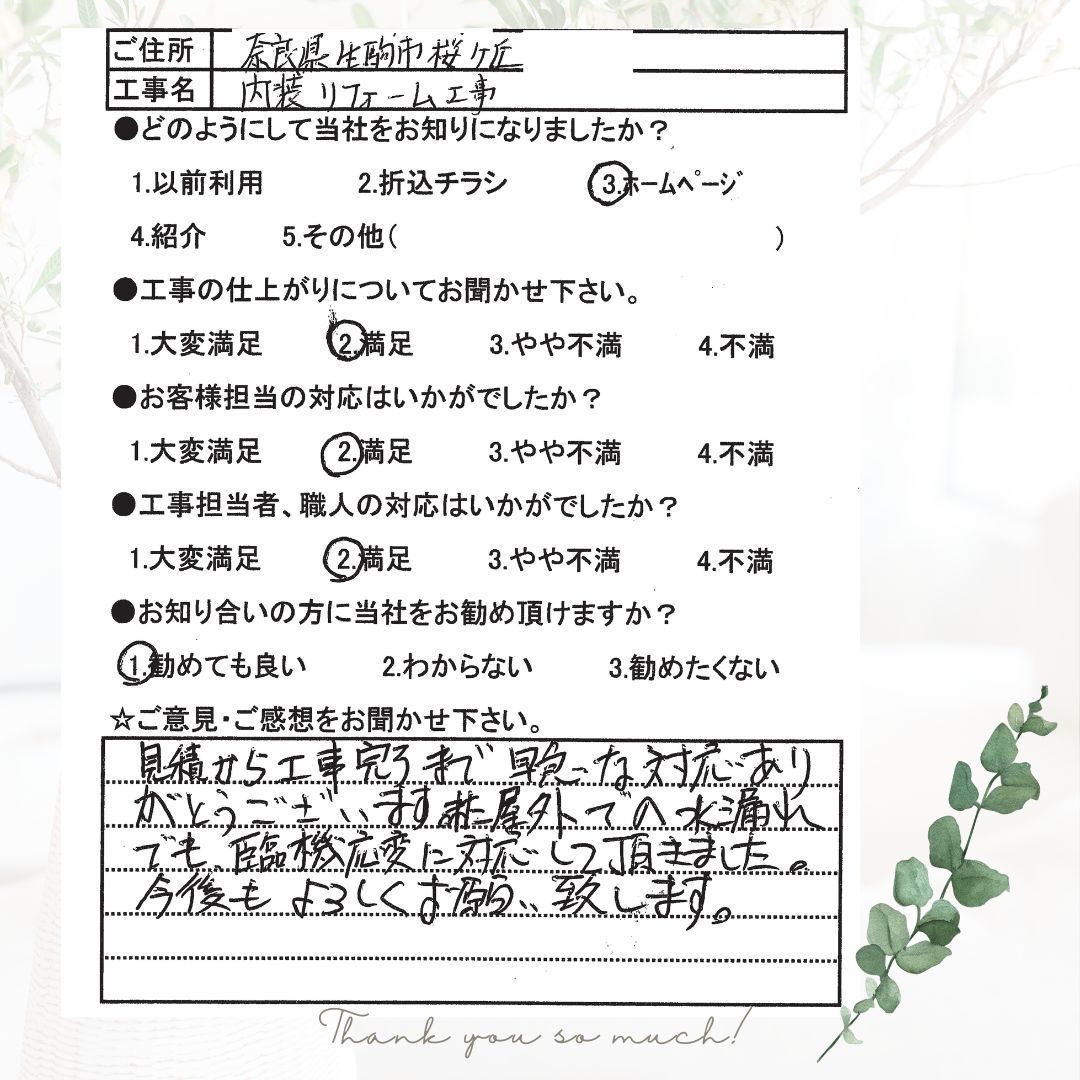 ご住所 奈良県生駒市桜ヶ丘
工事名 内装リフォーム工事
●どのようにして当社をお知りになりましたか？
1.以前利用 2.折込チラシ 3.ホームページ
4.紹介 5.その他( )
●工事の仕上がりについてお聞かせ下さい。
1.大変満足 2.満足 3.やや不満 4.不満
●お客様担当の対応はいかがでしたか？
1.大変満足 2.満足 3.やや不満 4.不満
●工事担当者、職人の対応はいかがでしたか？
1.大変満足 2.満足 3.やや不満 4.不満
●お知り合いの方に当社をお勧め頂けますか？
1.勧めても良い 2.わからない 3.勧めたくない
☆ご意見・ご感想をお聞かせ下さい。
見積から工事完了まで早急な対応あり
がとうございます。又屋外での水漏れ
でも、臨機応変に対応して頂きました。
今後もよろしくお願い致します。
Thank you so much!